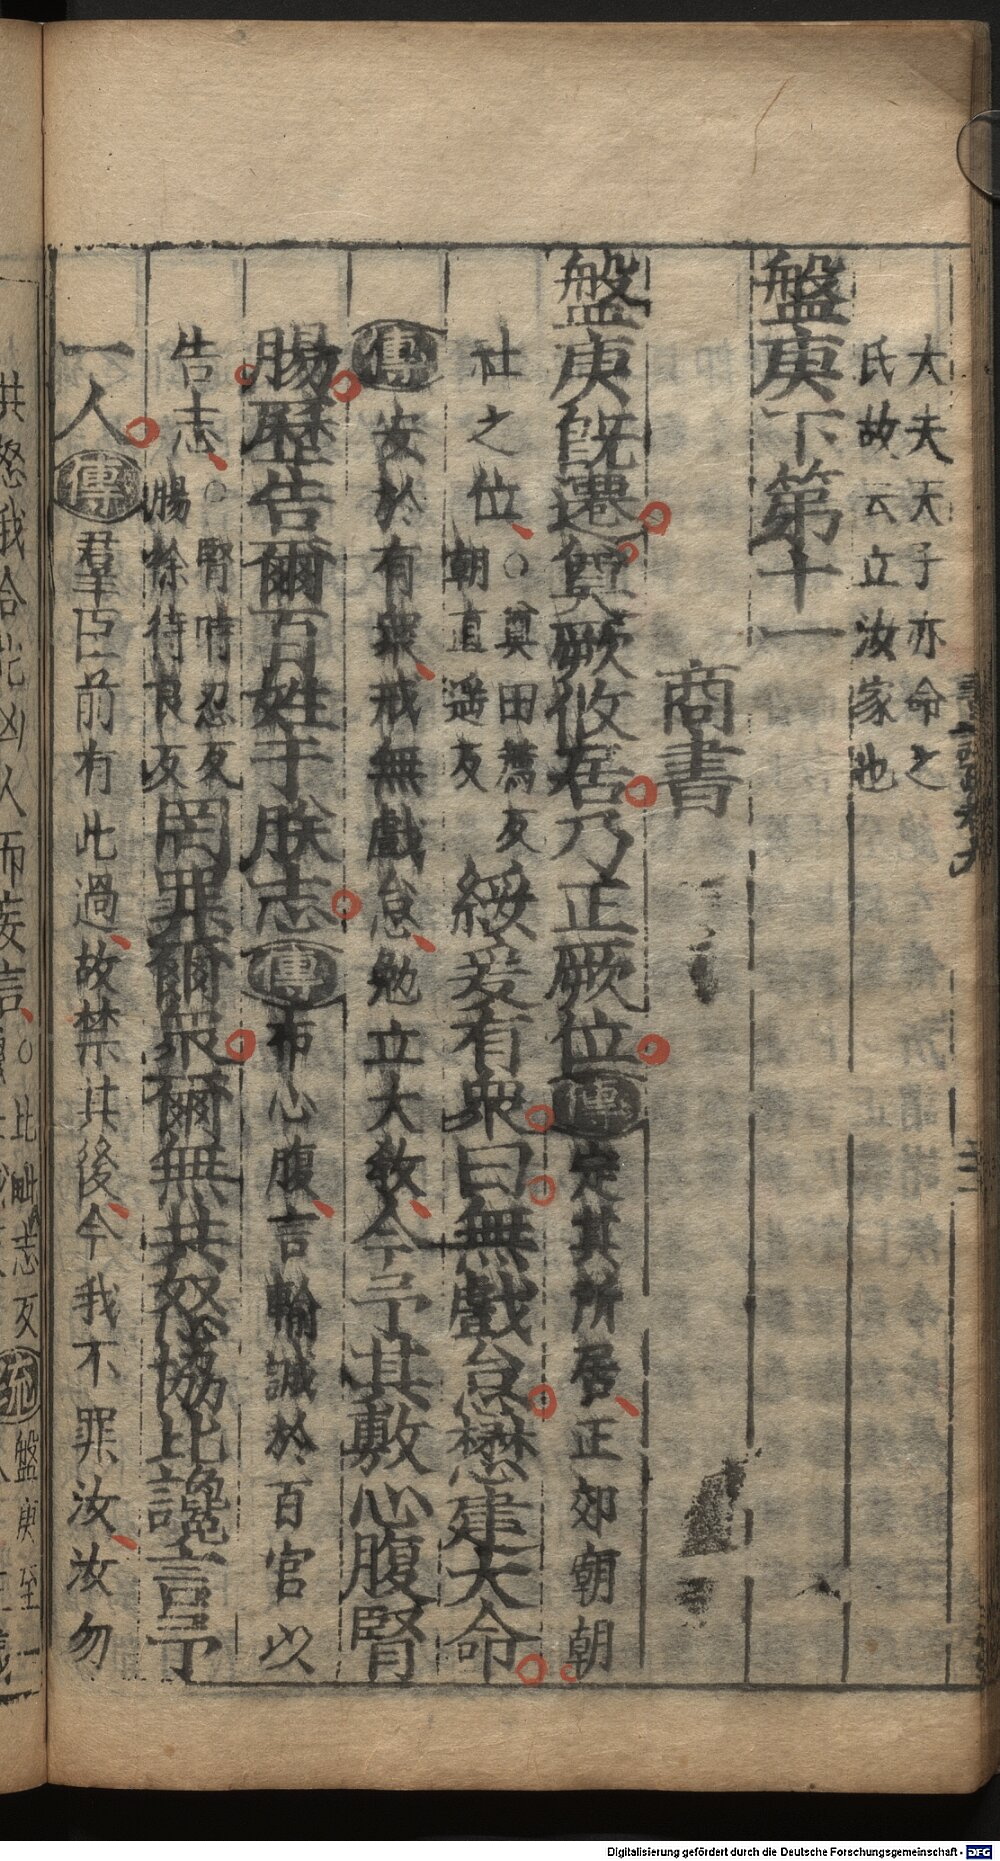 大夫天子亦命之
氏故云立汝家也
盤庚下第十一
商書
盤庚旣遷奠厥攸居乃正厥位傳定其所居正郊廟朝
社之位○奠田薦反
朝直遥反
綏爰有衆曰無戲怠懋建大命
傳安於有衆戒無戲怠勉立大敎今予其敷心腹腎
腸歷告爾百姓于朕志傳布心腹言輸誠於百官以
告志○腎時忍反
腸徐待良反
罔罪爾衆爾無共怒協比讒言予
一人傳羣臣前有此過故禁其後今我不罪汝汝勿
共怒我合比凶人而妄言○比毗志反
疏盤庚至一
Digitalisierung gefördert durch die Deutsche Forschungsgemeinschaft - DFG